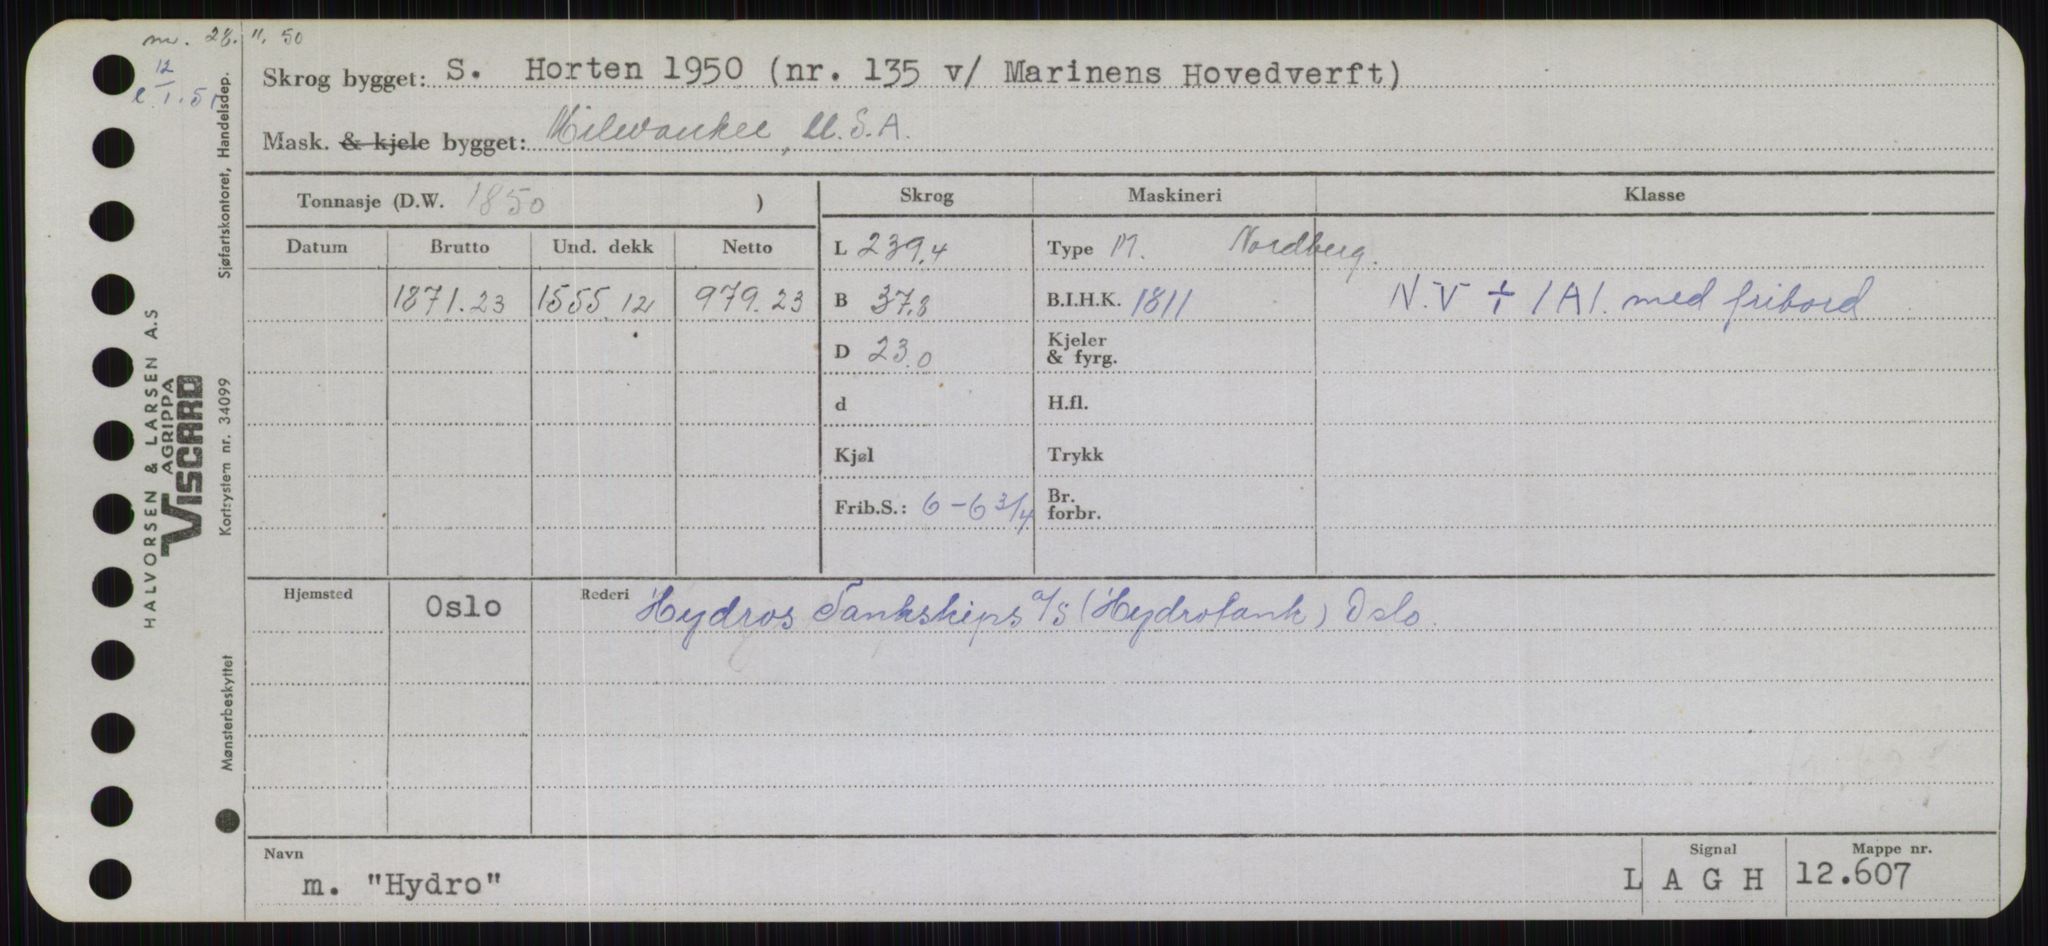 m. 28. 11. 50
12
e. 1. 51
Skrog bygget: S. Horten 1950 (nr. 135 v/ Marinens Hovedverft)
Mask. & kjele bygget: Milwaukee, U.S.A.
Tonnasje (D.W. 1850 )
Skrog Maskineri Klasse
Datum Brutto Und. dekk Netto
L 239,4 Type M. Nordberg.
1871.23 1555.12 979.23
B 37,8 B.I.H.K. 1811 N.V + 1A1. med fribord
D 23,0 Kjeler & fyrg.
d H.fl.
Kjøl Trykk
Frib.S.: 6-6 3/4 Br. forbr.
Hjemsted Oslo Rederi Hydros Tankskips a/s (Hydrotank) Oslo.
Navn m. "Hydro"
Signal L A G H
Mappe nr. 12.607
Sjøfartskontoret, Handelsdep.
HALVORSEN & LARSEN A.S
AGRIPPA
VISCARD
Kortsystem nr. 34099
Mønsterbeskyttet